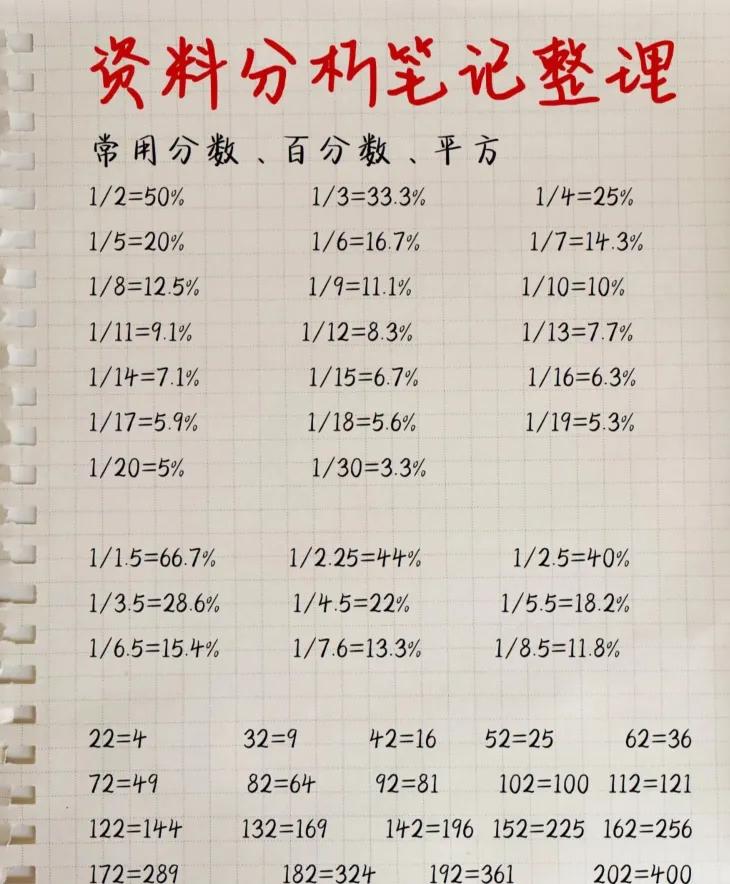 资料分析笔记整理
常用分数、百分数、平方
1/2=50% 1/3=33.3% 1/4=25%
1/5=20% 1/6=16.7% 1/7=14.3%
1/8=12.5% 1/9=11.1% 1/10=10%
1/11=9.1% 1/12=8.3% 1/13=7.7%
1/14=7.1% 1/15=6.7% 1/16=6.3%
1/17=5.9% 1/18=5.6% 1/19=5.3%
1/20=5% 1/30=3.3%
1/1.5=66.7% 1/2.25=44% 1/2.5=40%
1/3.5=28.6% 1/4.5=22% 1/5.5=18.2%
1/6.5=15.4% 1/7.6=13.3% 1/8.5=11.8%
22=4 32=9 42=16 52=25 62=36
72=49 82=64 92=81 102=100 112=121
122=144 132=169 142=196 152=225 162=256
172=289 182=324 192=361 202=400